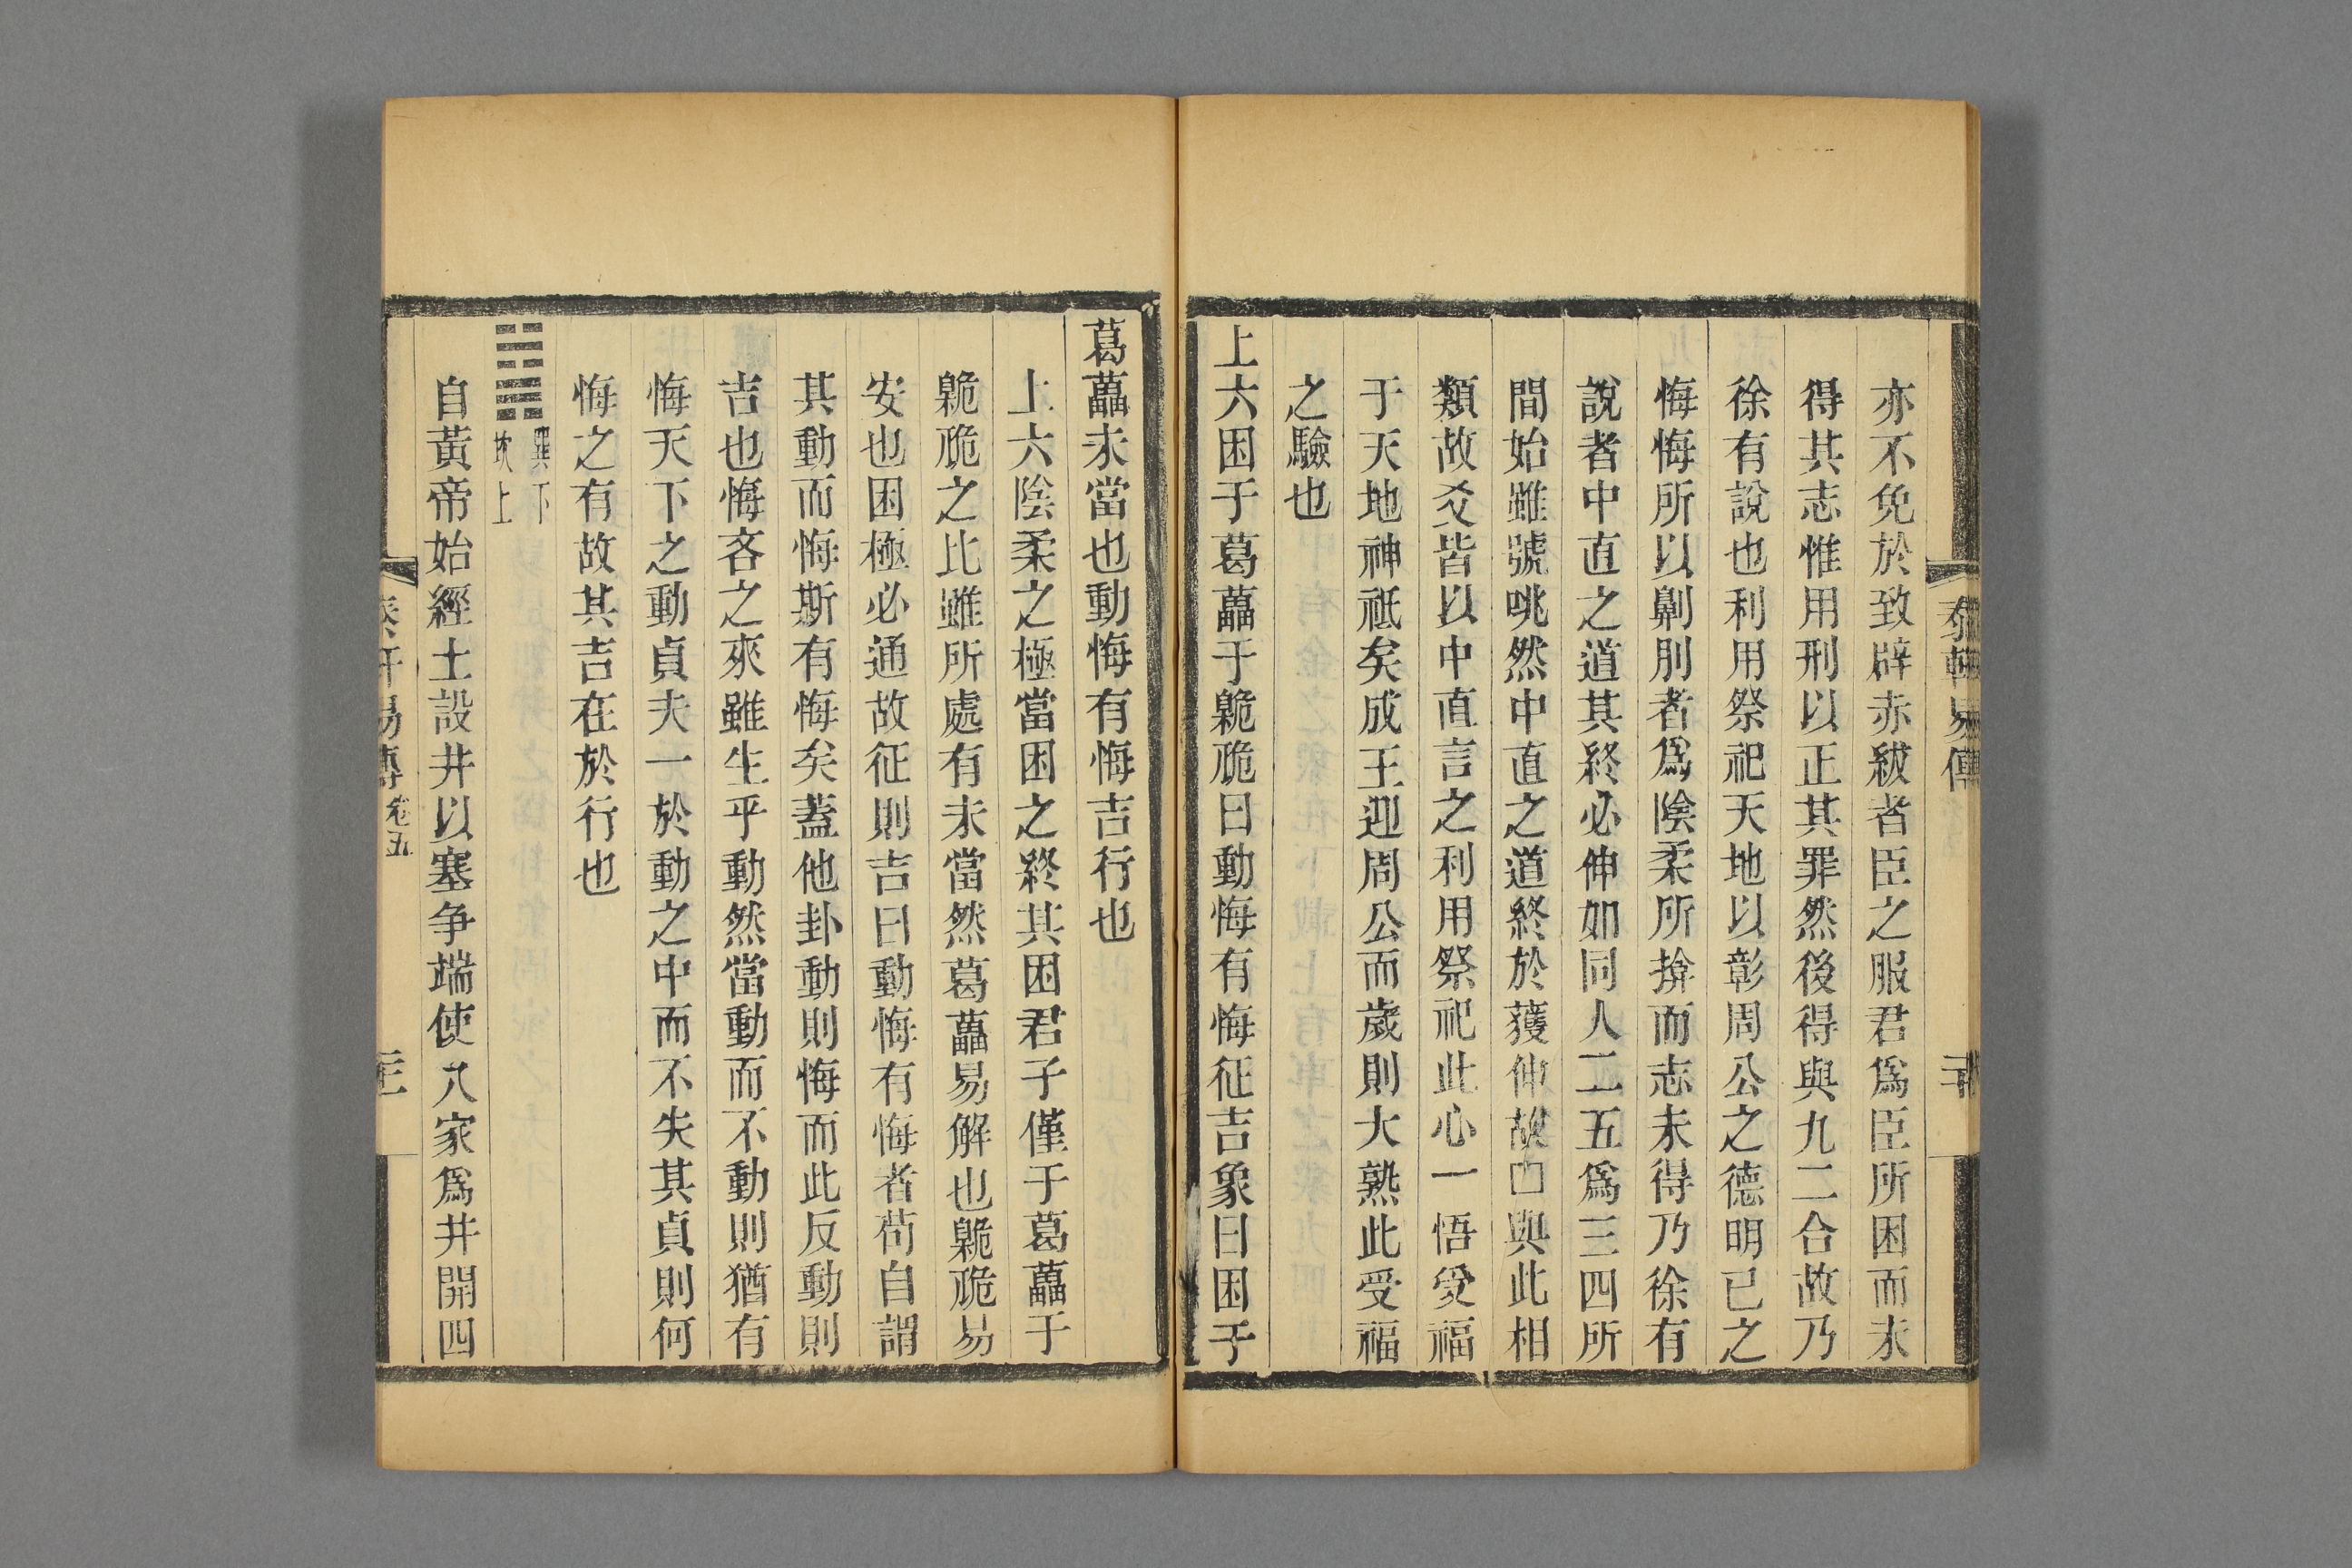 亦不免於致辟赤紱者臣之服君爲臣所困而未
得其志惟用刑以正其罪然後得與九二合故乃
徐有說也利用祭祀天地以彰周公之德明已之
悔悔所以劓刖者爲陰柔所揜而志未得乃徐有
說者中直之道其終必伸如同人二五爲三四所
間始雖號咷然中直之道終於獲伸故□與此相
類故爻皆以中直言之利用祭祀此心一悟受福
于天地神祇矣成王迎周公而歲則大熟此受福
之驗也
上六困于葛藟于臲卼曰動悔有悔征吉象曰困于
葛藟未當也動悔有悔吉行也
上六陰柔之極當困之終其困君子僅于葛藟于
臲卼之比雖所處有未當然葛藟易解也臲卼易
安也困極必通故征則吉曰動悔有悔者苟自謂
其動而悔斯有悔矣蓋他卦動則悔而此反動則
吉也悔吝之來雖生乎動然當動而不動則猶有
悔天下之動貞夫一於動之中而不失其貞則何
悔之有故其吉在於行也
䷯ 巽下
坎上
自黃帝始經土設井以塞争端使八家爲井開四
易傳 卷五